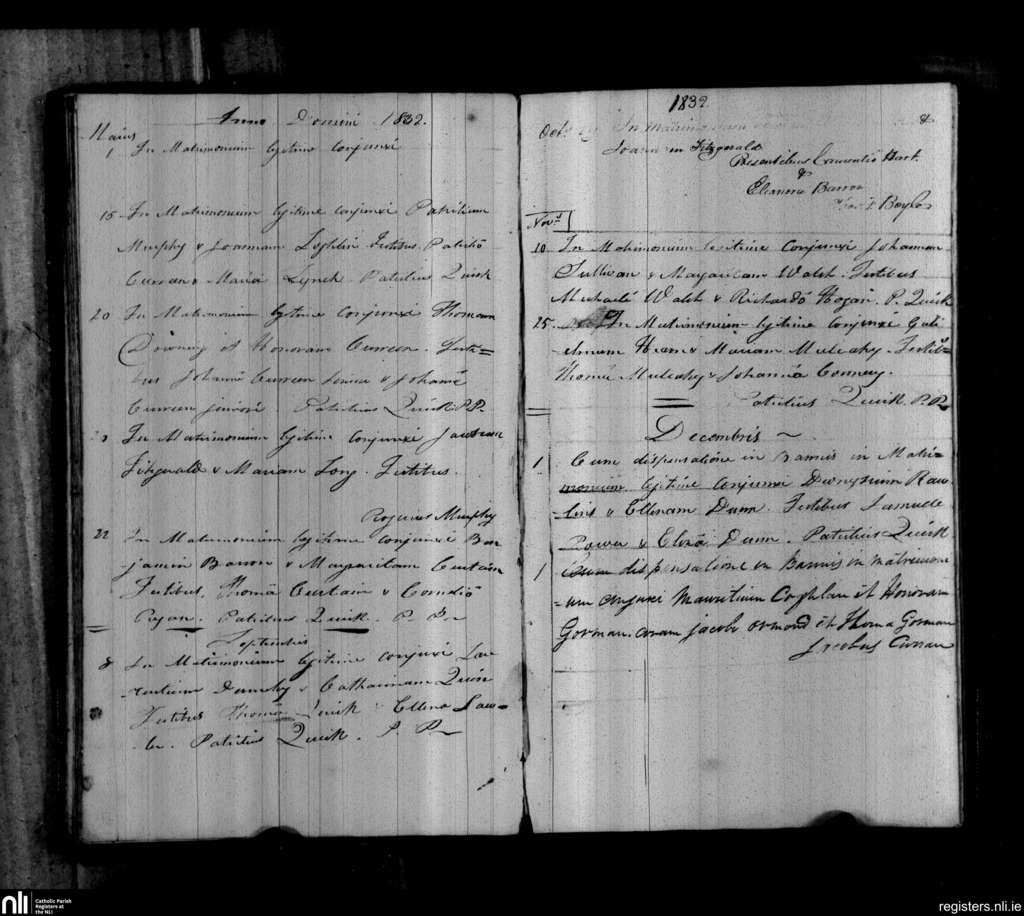 Anno Domini 1832.
Maius
1 In Matrimonium legitime conjunxi
15 In Matrimonium legitime conjunxi Patritium
Murphy & Joannam Loghlin Testibus Patritiô
Curran & Mariâ Lynch Patritius Quirk
20 In Matrimonium legitime conjunxi Thomam
Downing et Honoram Curreen. Testi=
bus Johanne Curreen seniore & Johanê
Curreen juniore. Patritius Quirk. P.P.
In Matrimonium legitime conjunxi
Fitzgerald & Mariam Long. Testibus.
Rogerius Murphy
22 In Matrimonium legitime conjunxi Ben
jamin Barron & Margaritam Curtain
Testibus. Thomâ Curtain & Corneliô
Ryan. Patritius Quirk. P. P.
Septembris
8 In Matrimonium legitime conjuxi Lau
rentium & Catharinam Quin
Testibus Thomâ Quirk & Ellena Law=
ler. Patritius Quirk. P. P.
1832
8
Octo In Matrimonium
Fitzgerald
Presentibus Hart
&
Eleanora Barron
Boyle
Nov.r
10 In Matrimonium legitime conjunxi Johannem
Sullivan & Margaritam Walsh. Testibus
Michaele Walsh & Richardô Hogan. P. Quirk
25 In Matrimonium legitime conjunxi Guli
elmum & Mariam Mulcahy. Testib=
Thomâ Mulcahy & Johannâ Conway.
Patritius Quirk. P.P.
Decembris
1 Cum dispensatione in Bannis in Matri
monium legitime conjunxi Dionysium Raw
lins & Ellenam Dunn. Testibus Samuele
Power & Elizâ Dunn. Patritius Quirk
1 Cum dispensatione in Bannis in matrimoni
um conjunxi Mauritium Coghlan et Honoram
Gorman. coram jacobo ormond et Thoma Gorman
Jacobus Curran
nli Catholic Parish
Registers at
the NLI
registers.nli.ie